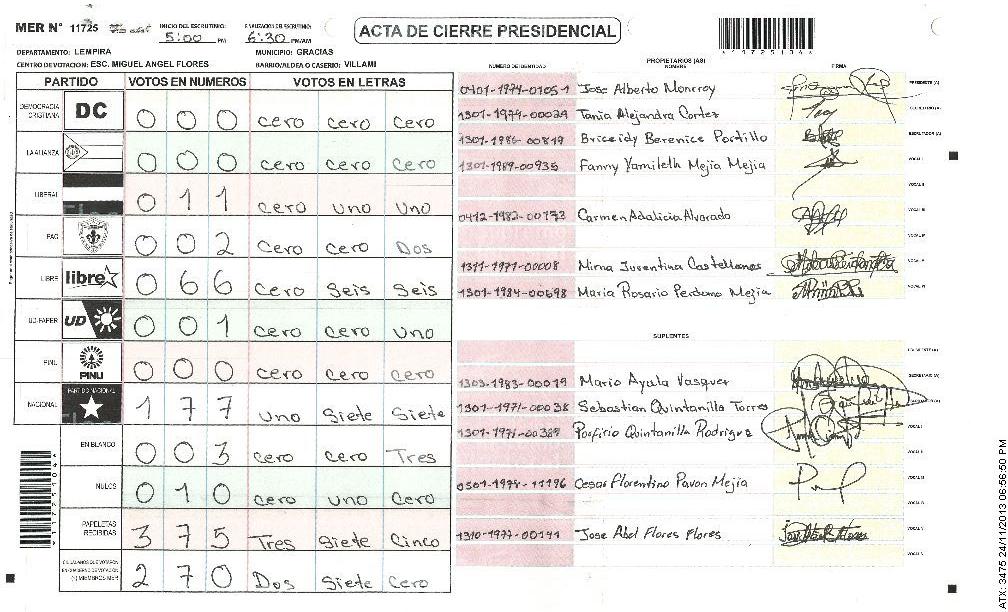 MER N° 11725
INICIO DEL ESCRUTINIO: 5:00 PM
FINALIZACION DEL ESCRUTINIO: 6:30 PM/AM
ACTA DE CIERRE PRESIDENCIAL
DEPARTAMENTO: LEMPIRA MUNICIPIO: GRACIAS
CENTRO DE VOTACION: ESC. MIGUEL ANGEL FLORES BARRIO/ALDEA O CASERIO: VILLAMI
PARTIDO VOTOS EN NUMEROS VOTOS EN LETRAS
DEMOCRACIA CRISTIANA DC 0 0 0 cero cero cero
LA ALIANZA 0 0 0 cero cero cero
LIBERAL 0 1 1 cero uno uno
PAC 0 0 2 cero cero Dos
LIBRE libre 0 6 6 cero seis seis
UD-FAPER UD 0 0 1 cero cero uno
PINU PINU 0 0 0 cero cero cero
NACIONAL PARTIDO NACIONAL 1 7 7 uno siete siete
EN BLANCO 0 0 3 cero cero Tres
NULOS 0 1 0 cero uno cero
PAPELETAS RECIBIDAS 3 7 5 Tres siete cinco
CIUDADANOS QUE VOTARON EN CUADERNO DE VOTACION (+) MIEMBROS MER 2 7 0 Dos siete cero
PROPIETARIOS (AS)
NUMERO DE IDENTIDAD NOMBRE FIRMA
0401-1974-01051 Jose Alberto Monrroy PRESIDENTE (A)
1301-1979-00029 Tania Alejandra Cortez SECRETARIO (A)
1301-1986-00819 Briceidy Berenice Portillo ESCRUTADOR (A)
1301-1989-00935 Fanny Yamileth Mejia Mejia VOCAL I
VOCAL II
0412-1982-00173 Carmen Adalicia Alvarado VOCAL III
VOCAL IV
1311-1971-00008 Mirna Juventina Castellanos VOCAL V
1301-1984-00698 Maria Rosario Perdomo Mejia VOCAL VI
SUPLENTES
PRESIDENTE (A)
1303-1983-00019 Mario Ayala Vasquez SECRETARIO (A)
1301-1971-00038 Sebastian Quintanilla Torres
1301-1971-00389 Porfirio Quintanilla Rodriguez VOCAL I
VOCAL II
0501-1979-11196 Cesar Florentino Pavon Mejia VOCAL III
VOCAL IV
1310-1977-00141 Jose Abel Flores Flores VOCAL V
VOCAL VI
ATX: 3475 24/11/2013 06:56:50 PM